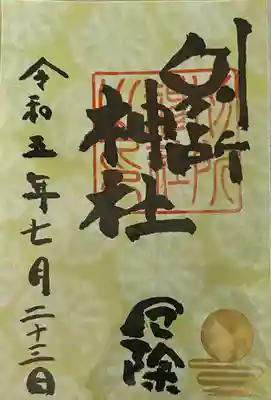 別所
神社
厄除
令和五年七月二十三日